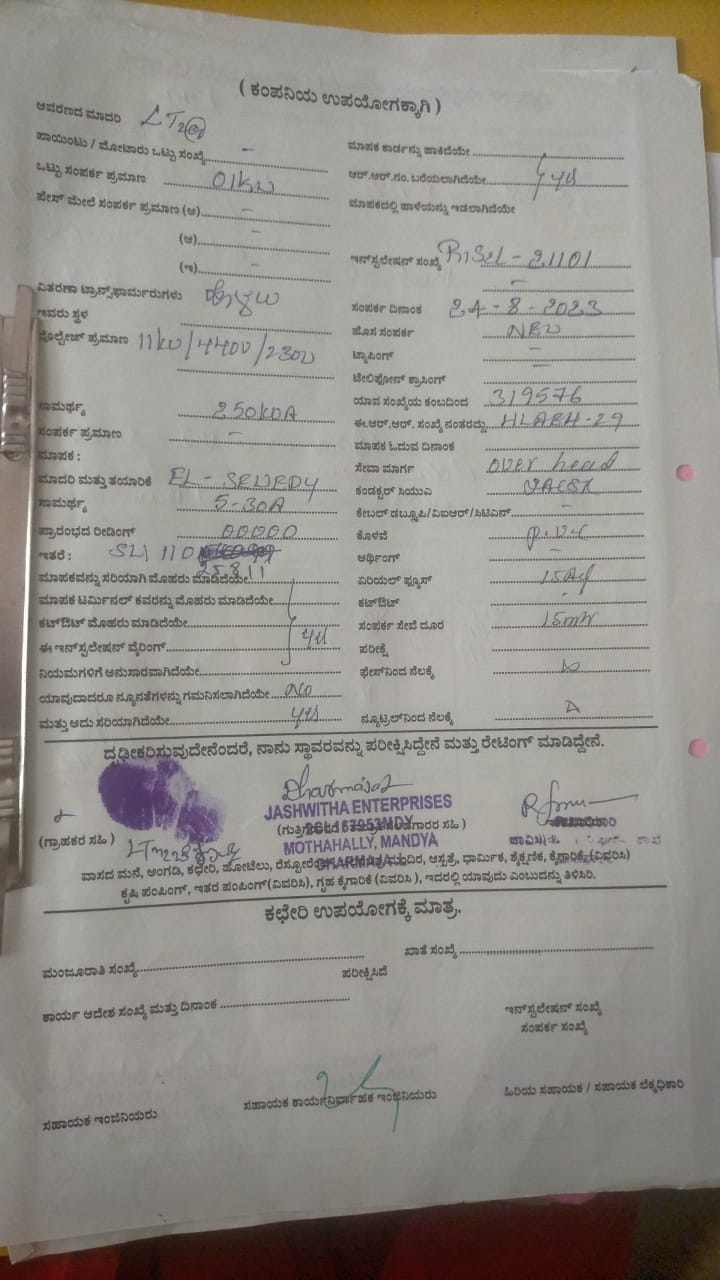 ( ಕಂಪನಿಯ ಉಪಯೋಗಕ್ಕಾಗಿ )
ಆವರಣದ ಮಾದರಿ LT2(a)
ಪಾಯಿಂಟು / ಮೋಟಾರು ಒಟ್ಟು ಸಂಖ್ಯೆ -
ಒಟ್ಟು ಸಂಪರ್ಕ ಪ್ರಮಾಣ 01KW
ಫೇಸ್ ಮೇಲೆ ಸಂಪರ್ಕ ಪ್ರಮಾಣ (ಅ) -
(ಆ) -
(ಇ) -
ವಿತರಣಾ ಟ್ರಾನ್ಸ್‌ಫಾರ್ಮರುಗಳು
ಇವರು ಸ್ಥಳ
ವೋಲ್ಟೇಜ್ ಪ್ರಮಾಣ 11KV/440V/230V
ಸಾಮರ್ಥ್ಯ 250KVA
ಸಂಪರ್ಕ ಪ್ರಮಾಣ -
ಮಾಪಕ :
ಮಾದರಿ ಮತ್ತು ತಯಾರಿಕೆ EL-SEWEDY
ಸಾಮರ್ಥ್ಯ 5-30A
ಪ್ರಾರಂಭದ ರೀಡಿಂಗ್ 00000
ಇತರೆ : SL 110
25811
ಮಾಪಕವನ್ನು ಸರಿಯಾಗಿ ಮೊಹರು ಮಾಡಿದೆಯೇ
ಮಾಪಕ ಟರ್ಮಿನಲ್ ಕವರನ್ನು ಮೊಹರು ಮಾಡಿದೆಯೇ
ಕಟ್‌ಔಟ್ ಮೊಹರು ಮಾಡಿದೆಯೇ
ಈ ಇನ್‌ಸ್ಟಲೇಷನ್ ವೈರಿಂಗ್ yes
ನಿಯಮಗಳಿಗೆ ಅನುಸಾರವಾಗಿದೆಯೇ
ಯಾವುದಾದರೂ ನ್ಯೂನತೆಗಳನ್ನು ಗಮನಿಸಲಾಗಿದೆಯೇ No
ಮತ್ತು ಅದು ಸರಿಯಾಗಿದೆಯೇ yes
ಮಾಪಕ ಕಾರ್ಡನ್ನು ಹಾಕಿದೆಯೇ
ಆರ್.ಆರ್.ನಂ. ಬರೆಯಲಾಗಿದೆಯೇ yes
ಮಾಪಕದಲ್ಲಿ ಹಾಳೆಯನ್ನು ಇಡಲಾಗಿದೆಯೇ
ಇನ್‌ಸ್ಟಲೇಷನ್ ಸಂಖ್ಯೆ - 21101
-
ಸಂಪರ್ಕ ದಿನಾಂಕ 24-8-2023
ಹೊಸ ಸಂಪರ್ಕ NEW
ಟ್ಯಾಪಿಂಗ್ -
ಟೇಲಿಫೋನ್ ಕ್ರಾಸಿಂಗ್ -
ಯಾವ ಸಂಖ್ಯೆಯ ಕಂಬದಿಂದ 319576
ಈ.ಆರ್.ಆರ್. ಸಂಖ್ಯೆ ನಂತರದ್ದು HLAEH-29
ಮಾಪಕ ಓದುವ ದಿನಾಂಕ -
ಸೇವಾ ಮಾರ್ಗ over head
ಕಂಡಕ್ಟರ್ ಸಿಯುಎ
ಕೇಬಲ್ ಡಬ್ಲೂಪಿ/ವಿಐಆರ್/ಸಿಟಿಎಸ್ -
ಕೊಳವೆ p.v.c
ಅರ್ಥಿಂಗ್ -
ಏರಿಯಲ್ ಫ್ಯೂಸ್
ಕಟ್‌ಔಟ್ -
ಸಂಪರ್ಕ ಸೇವೆ ದೂರ 15mtr
ಪರೀಕ್ಷೆ
ಫೇಸ್‌ನಿಂದ ನೆಲಕ್ಕೆ
ನ್ಯೂಟ್ರಲ್‌ನಿಂದ ನೆಲಕ್ಕೆ
ದೃಢೀಕರಿಸುವುದೇನೆಂದರೆ, ನಾನು ಸ್ಥಾವರವನ್ನು ಪರೀಕ್ಷಿಸಿದ್ದೇನೆ ಮತ್ತು ರೇಟಿಂಗ್ ಮಾಡಿದ್ದೇನೆ.
JASHWITHA ENTERPRISES
MOTHAHALLY, MANDYA
(ಗ್ರಾಹಕರ ಸಹಿ )
ವಾಸದ ಮನೆ, ಅಂಗಡಿ, ಕಛೇರಿ, ಹೋಟೆಲು, ಆಸ್ಪತ್ರೆ, ಧಾರ್ಮಿಕ, ಶೈಕ್ಷಣಿಕ, ಕೈಗಾರಿಕೆ,(ವಿವರಿಸಿ)
ಕೃಷಿ ಪಂಪಿಂಗ್, ಇತರ ಪಂಪಿಂಗ್(ವಿವರಿಸಿ), ಗೃಹ ಕೈಗಾರಿಕೆ (ವಿವರಿಸಿ ), ಇದರಲ್ಲಿ ಯಾವುದು ಎಂಬುದನ್ನು ತಿಳಿಸಿರಿ.
ಕಛೇರಿ ಉಪಯೋಗಕ್ಕೆ ಮಾತ್ರ.
ಮಂಜೂರಾತಿ ಸಂಖ್ಯೆ
ಖಾತೆ ಸಂಖ್ಯೆ
ಪರೀಕ್ಷಿಸಿದೆ
ಕಾರ್ಯ ಆದೇಶ ಸಂಖ್ಯೆ ಮತ್ತು ದಿನಾಂಕ
ಇನ್‌ಸ್ಟಲೇಷನ್ ಸಂಖ್ಯೆ
ಸಂಪರ್ಕ ಸಂಖ್ಯೆ
ಸಹಾಯಕ ಇಂಜಿನಿಯರು
ಸಹಾಯಕ ಕಾರ್ಯನಿರ್ವಾಹಕ ಇಂಜಿನಿಯರು
ಹಿರಿಯ ಸಹಾಯಕ / ಸಹಾಯಕ ಲೆಕ್ಕಧಿಕಾರಿ